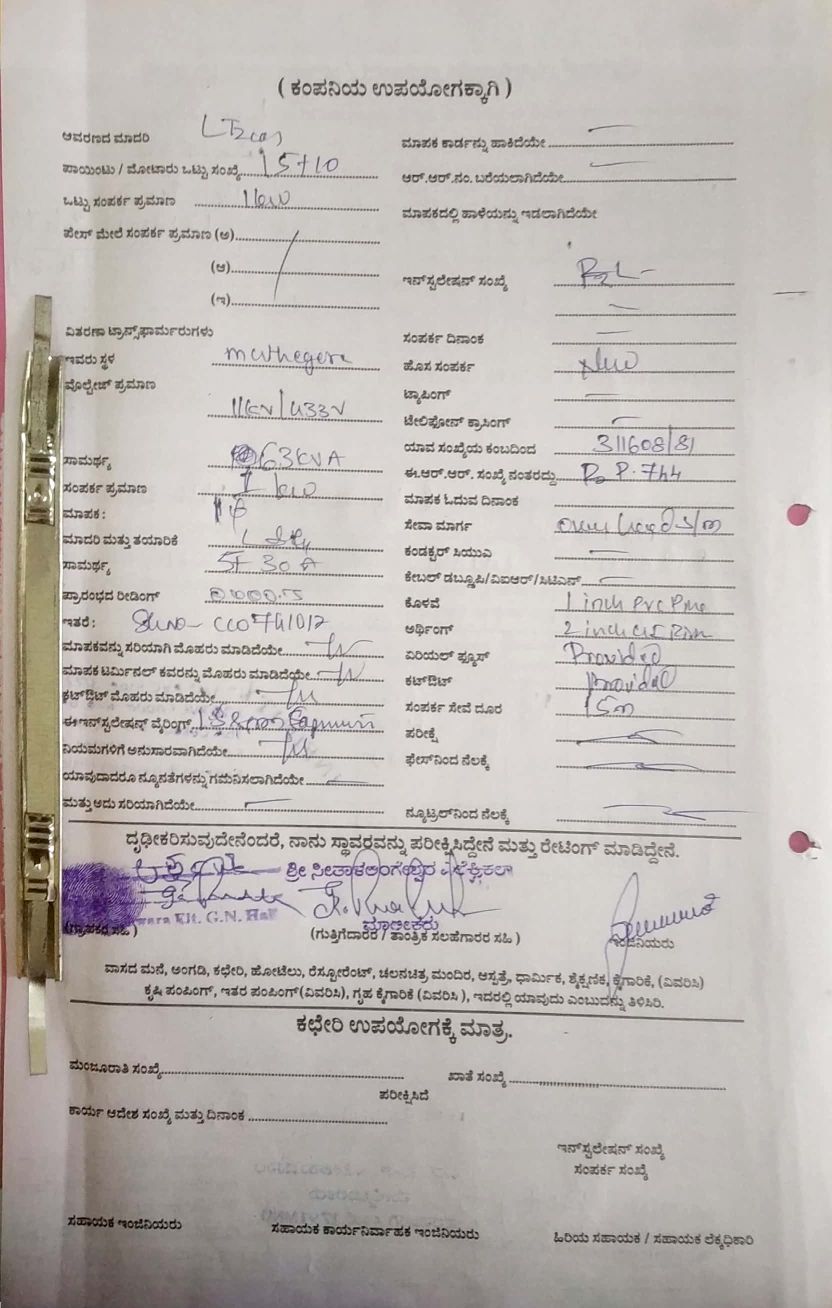 ( ಕಂಪನಿಯ ಉಪಯೋಗಕ್ಕಾಗಿ )
ಆವರಣದ ಮಾದರಿ LT2(a)
ಪಾಯಿಂಟು / ಮೋಟಾರು ಒಟ್ಟು ಸಂಖ್ಯೆ 15+10
ಒಟ್ಟು ಸಂಪರ್ಕ ಪ್ರಮಾಣ 1kw
ಪೇಸ್ ಮೇಲೆ ಸಂಪರ್ಕ ಪ್ರಮಾಣ (ಅ)
(ಆ)
(ಇ)
ವಿತರಣಾ ಟ್ರಾನ್ಸ್‌ಫಾರ್ಮರುಗಳು
ಇವರು ಸ್ಥಳ muthegere
ವೋಲ್ಟೇಜ್ ಪ್ರಮಾಣ
11KV/433V
ಸಾಮರ್ಥ್ಯ 63KVA
ಸಂಪರ್ಕ ಪ್ರಮಾಣ 1 kw
ಮಾಪಕ : 1φ
ಮಾದರಿ ಮತ್ತು ತಯಾರಿಕೆ
ಸಾಮರ್ಥ್ಯ 5-30A
ಪ್ರಾರಂಭದ ರೀಡಿಂಗ್
ಇತರೆ : Slno-
ಮಾಪಕವನ್ನು ಸರಿಯಾಗಿ ಮೊಹರು ಮಾಡಿದೆಯೇ
ಮಾಪಕ ಟರ್ಮಿನಲ್ ಕವರನ್ನು ಮೊಹರು ಮಾಡಿದೆಯೇ
ಕಟ್‌ಔಟ್ ಮೊಹರು ಮಾಡಿದೆಯೇ
ಈ ಇನ್‌ಸ್ಟಲೇಷನ್ ವೈರಿಂಗ್
ನಿಯಮಗಳಿಗೆ ಅನುಸಾರವಾಗಿದೆಯೇ
ಯಾವುದಾದರೂ ನ್ಯೂನತೆಗಳನ್ನು ಗಮನಿಸಲಾಗಿದೆಯೇ
ಮತ್ತು ಅದು ಸರಿಯಾಗಿದೆಯೇ
ಮಾಪಕ ಕಾರ್ಡನ್ನು ಹಾಕಿದೆಯೇ
ಆರ್.ಆರ್.ನಂ. ಬರೆಯಲಾಗಿದೆಯೇ
ಮಾಪಕದಲ್ಲಿ ಹಾಳೆಯನ್ನು ಇಡಲಾಗಿದೆಯೇ
ಇನ್‌ಸ್ಟಲೇಷನ್ ಸಂಖ್ಯೆ
ಸಂಪರ್ಕ ದಿನಾಂಕ
ಹೊಸ ಸಂಪರ್ಕ New
ಟ್ಯಾಪಿಂಗ್
ಟೆಲಿಫೋನ್ ಕ್ರಾಸಿಂಗ್
ಯಾವ ಸಂಖ್ಯೆಯ ಕಂಬದಿಂದ 311608/81
ಈ.ಆರ್.ಆರ್. ಸಂಖ್ಯೆ ನಂತರದ್ದು P.744
ಮಾಪಕ ಓದುವ ದಿನಾಂಕ
ಸೇವಾ ಮಾರ್ಗ
ಕಂಡಕ್ಟರ್ ಸಿಯುವಿ
ಕೇಬಲ್ ಡಬ್ಲೂಪಿ/ವಿಐಆರ್/ಸಿಟಿಎನ್
ಕೊಳವೆ 1 inch PVC Pipe
ಅರ್ಥಿಂಗ್ 2 inch
ವಿರಿಯಲ್ ಪ್ಯೂಸ್ Provided
ಕಟ್‌ಔಟ್ Provided
ಸಂಪರ್ಕ ಸೇವೆ ದೂರ 15m
ಪರೀಕ್ಷೆ
ಫೇಸ್‌ನಿಂದ ನೆಲಕ್ಕೆ
ನ್ಯೂಟ್ರಲ್‌ನಿಂದ ನೆಲಕ್ಕೆ
ದೃಢೀಕರಿಸುವುದೇನೆಂದರೆ, ನಾನು ಸ್ಥಾವರವನ್ನು ಪರೀಕ್ಷಿಸಿದ್ದೇನೆ ಮತ್ತು ರೇಟಿಂಗ್ ಮಾಡಿದ್ದೇನೆ.
ಶ್ರೀ
ವara Elt. G.N. Hall
ಮಾಲೀಕರು
(ಗ್ರಾಹಕರ ಸಹಿ )
(ಗುತ್ತಿಗೆದಾರರ / ತಾಂತ್ರಿಕ ಸಲಹೆಗಾರರ ಸಹಿ )
ಇಂಜಿನಿಯರು
ವಾಸದ ಮನೆ, ಅಂಗಡಿ, ಕಛೇರಿ, ಹೋಟೆಲು, ರೆಸ್ಟೋರೆಂಟ್, ಚಲನಚಿತ್ರ ಮಂದಿರ, ಆಸ್ಪತ್ರೆ, ಧಾರ್ಮಿಕ, ಶೈಕ್ಷಣಿಕ, ಕೈಗಾರಿಕೆ, (ವಿವರಿಸಿ)
ಕೃಷಿ ಪಂಪಿಂಗ್, ಇತರ ಪಂಪಿಂಗ್(ವಿವರಿಸಿ), ಗೃಹ ಕೈಗಾರಿಕೆ (ವಿವರಿಸಿ ), ಇದರಲ್ಲಿ ಯಾವುದು ಎಂಬುದನ್ನು ತಿಳಿಸಿರಿ.
ಕಛೇರಿ ಉಪಯೋಗಕ್ಕೆ ಮಾತ್ರ.
ಮಂಜೂರಾತಿ ಸಂಖ್ಯೆ
ಖಾತೆ ಸಂಖ್ಯೆ
ಪರೀಕ್ಷಿಸಿದೆ
ಕಾರ್ಯ ಆದೇಶ ಸಂಖ್ಯೆ ಮತ್ತು ದಿನಾಂಕ
ಇನ್‌ಸ್ಟಲೇಷನ್ ಸಂಖ್ಯೆ
ಸಂಪರ್ಕ ಸಂಖ್ಯೆ
ಸಹಾಯಕ ಇಂಜಿನಿಯರು
ಸಹಾಯಕ ಕಾರ್ಯನಿರ್ವಾಹಕ ಇಂಜಿನಿಯರು
ಹಿರಿಯ ಸಹಾಯಕ / ಸಹಾಯಕ ಲೆಕ್ಕಧಿಕಾರಿ